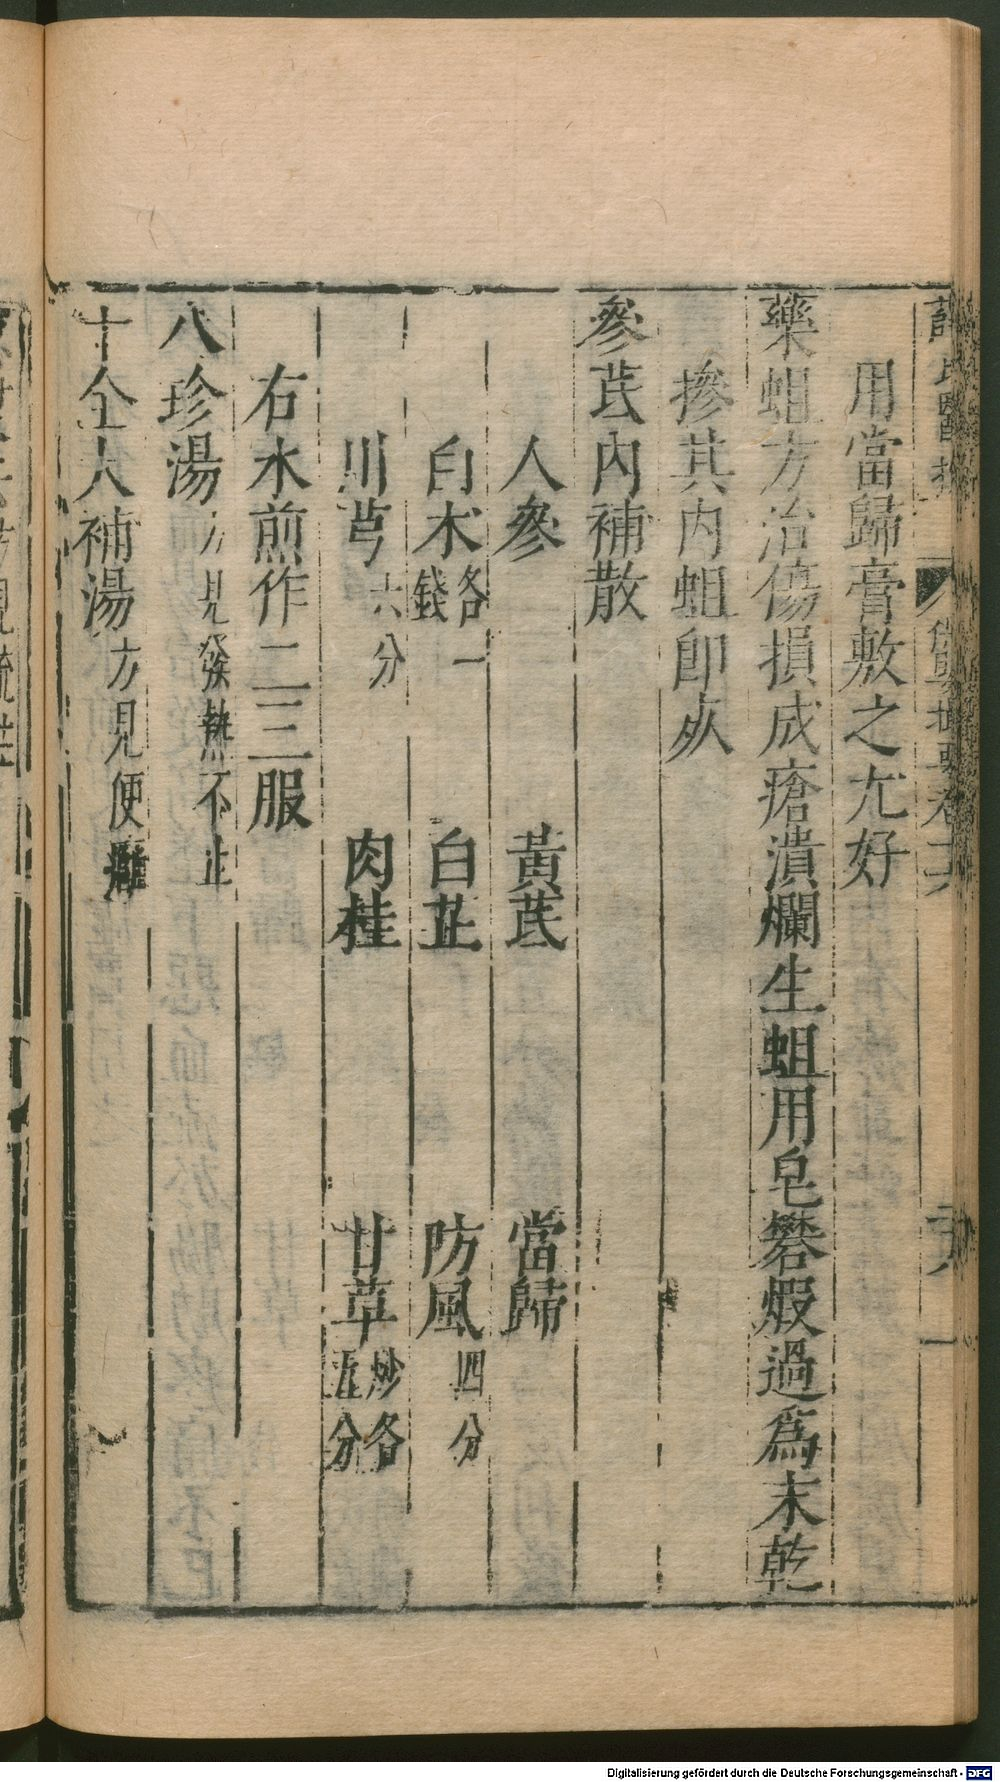 用當歸膏敷之尤好
藥蛆方治傷損成瘡潰爛生蛆用皂礬煅過爲末乾
摻其內蛆卽死
參芪內補散
人參 黃芪 當歸
白朮各一錢 白芷 防風四分
川芎六分 肉桂 甘草炒各五分
右水煎作二三服
八珍湯方見發熱不止
十全大補湯方見便
Digitalisierung gefördert durch die Deutsche Forschungsgemeinschaft - DFG